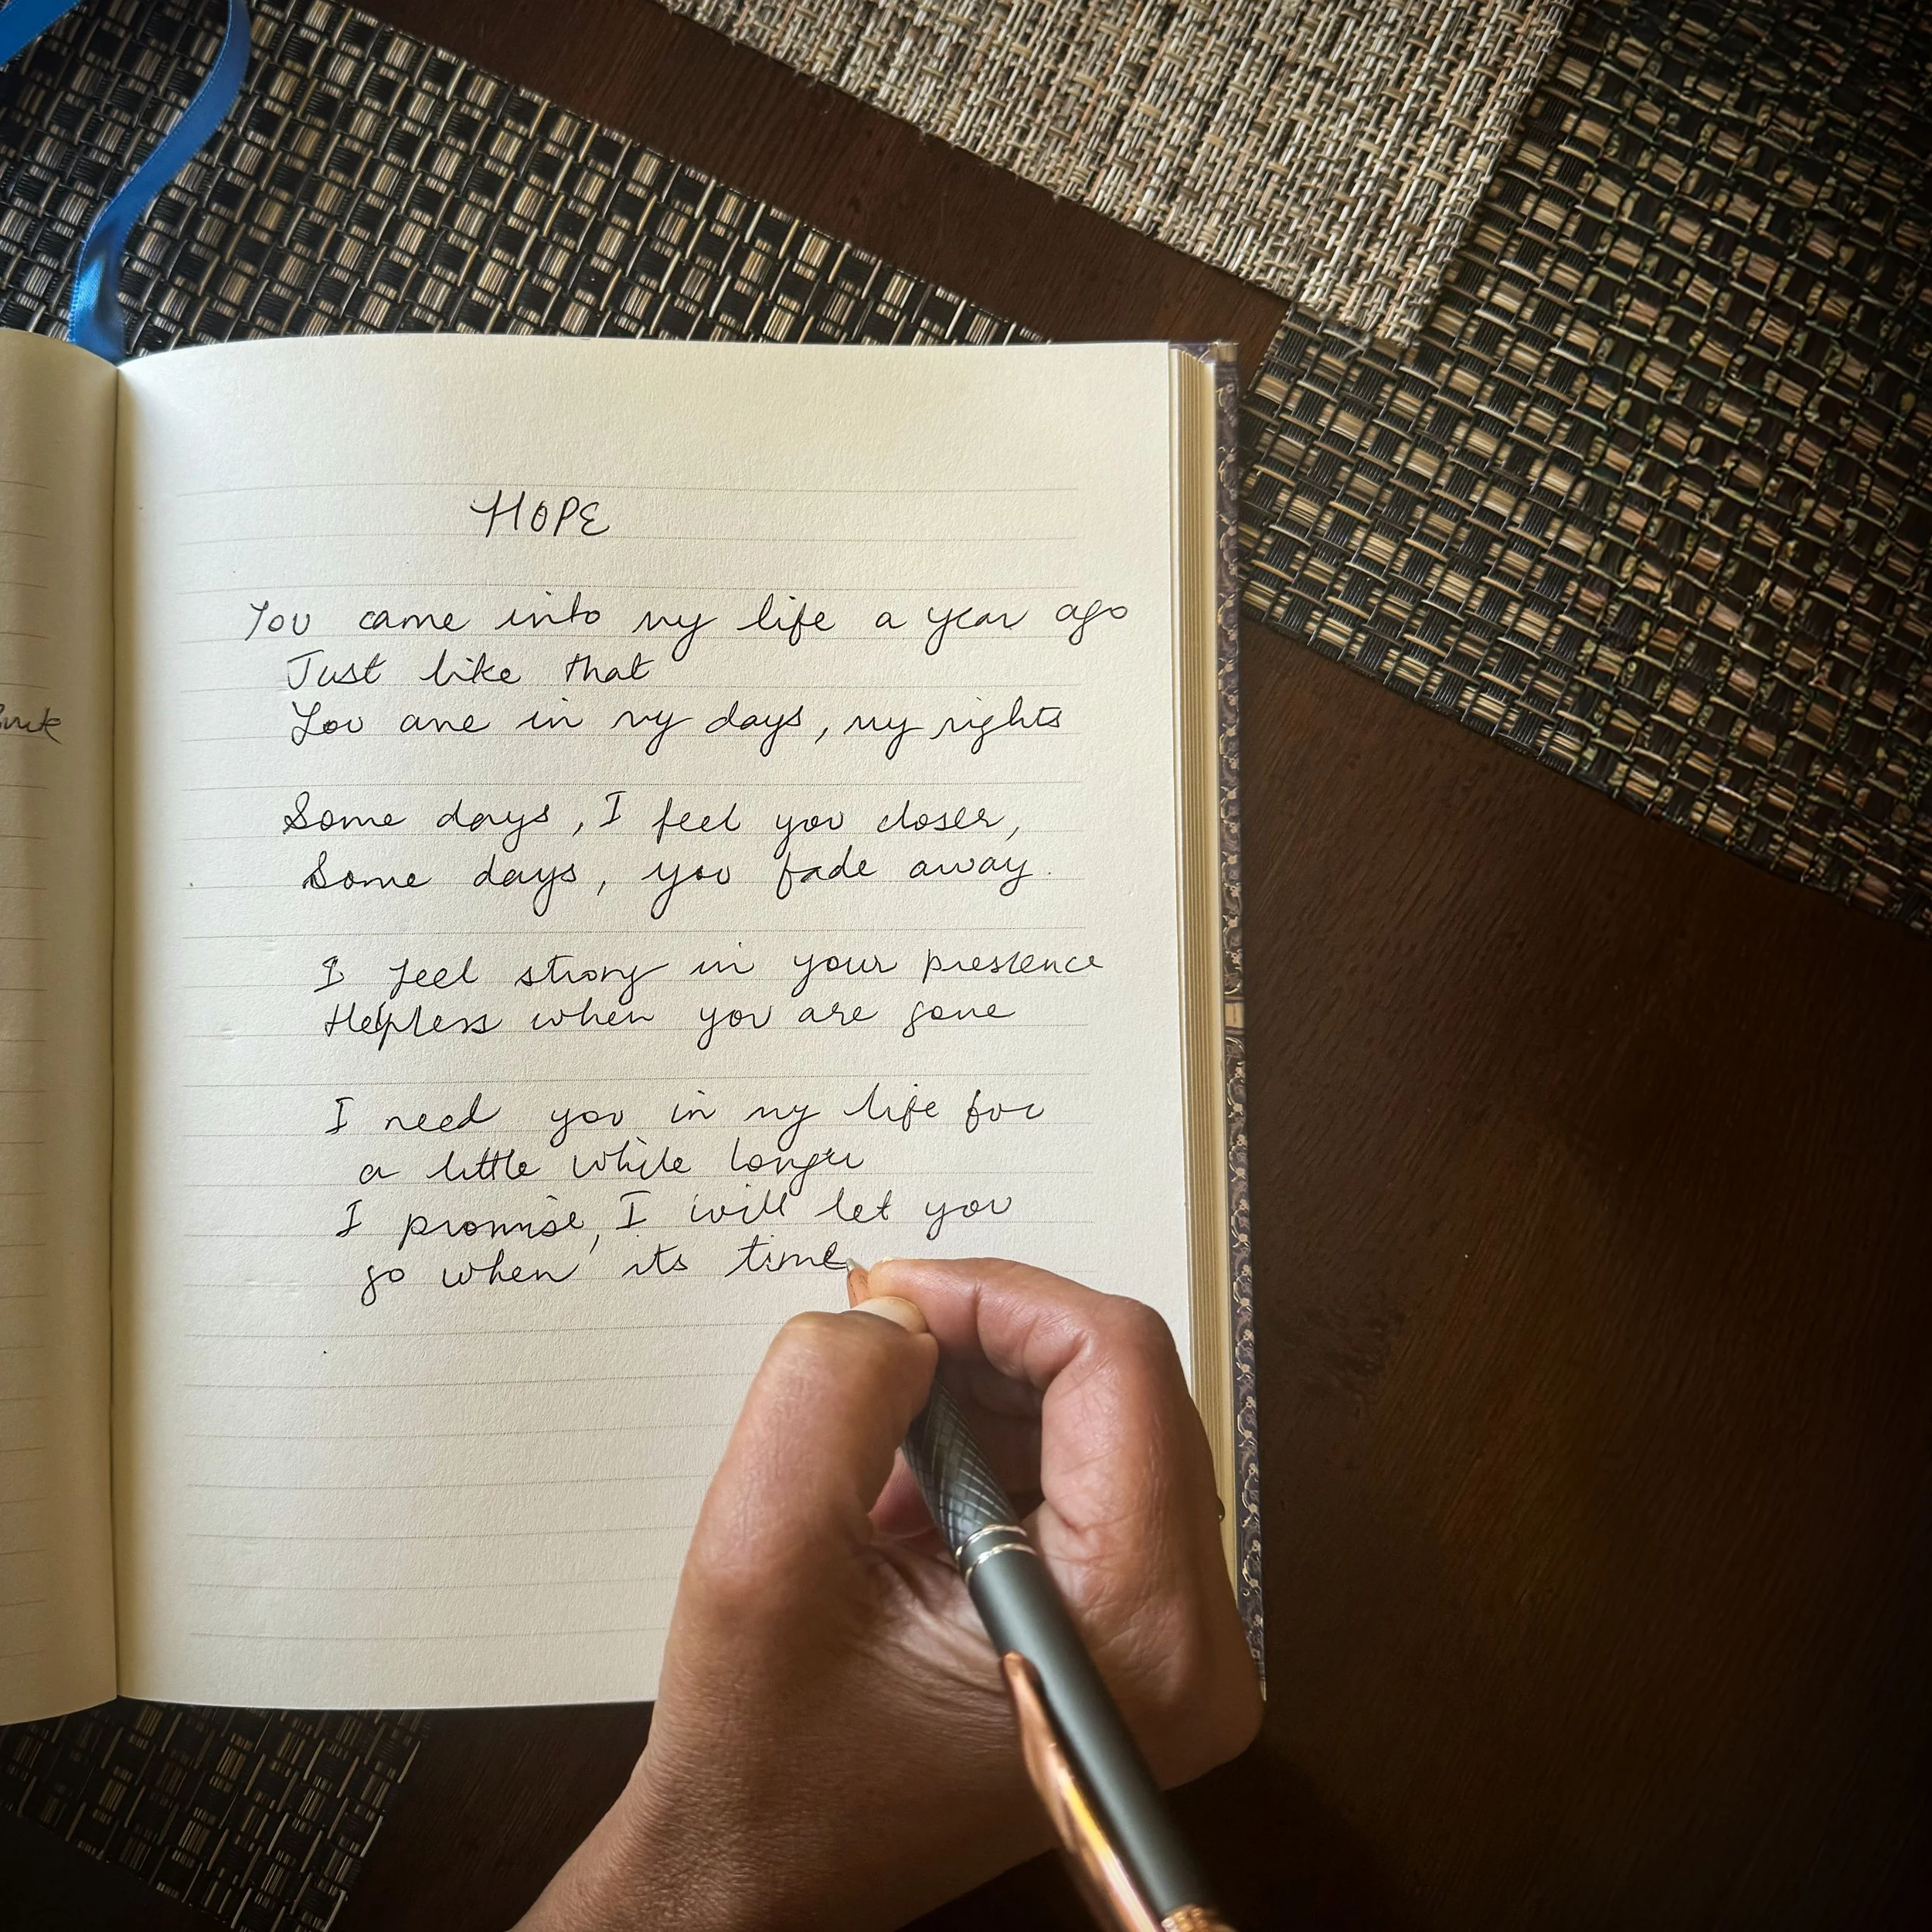 HOPE
You came into my life a year ago
Just like that
You are in my days, my nights
Some days, I feel you closer,
Some days, you fade away.
I feel strong in your presence
Helpless when you are gone
I need you in my life for
a little while longer
I promise, I will let you
go when its time